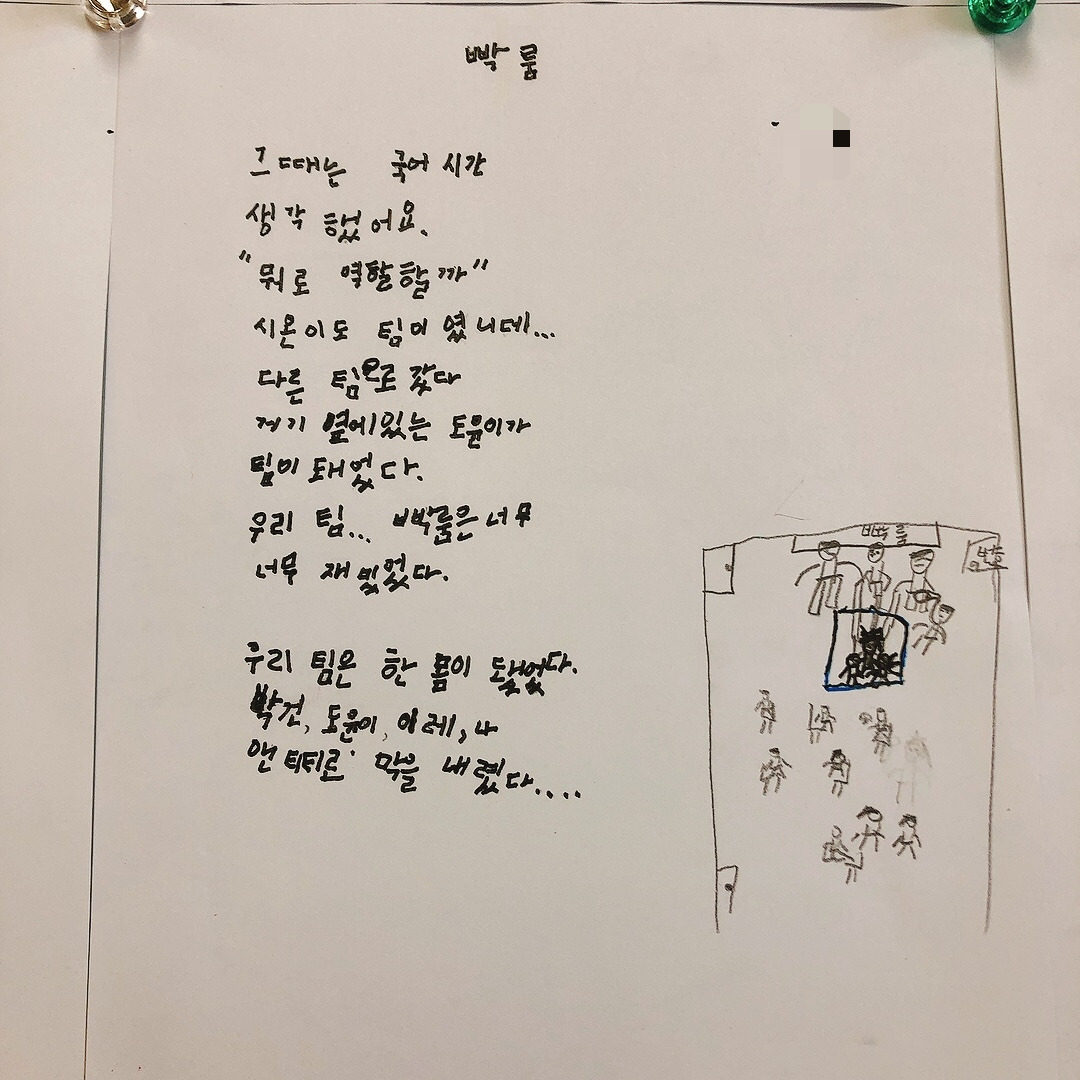 빡룸
그때는 국어 시간
생각 했어요.
"뭐로 역할할까"
시온이도 팀이 였니데...
다른 팀으로 갔다
저기 옆에있는 도윤이가
팀이 돼었다.
우리 팀... 빡룸은 너무
너무 재밌었다.
우리 팀은 한 몸이 됐었다.
박건, 도윤이, 이레, 나
막을 내렸다....
빡룸